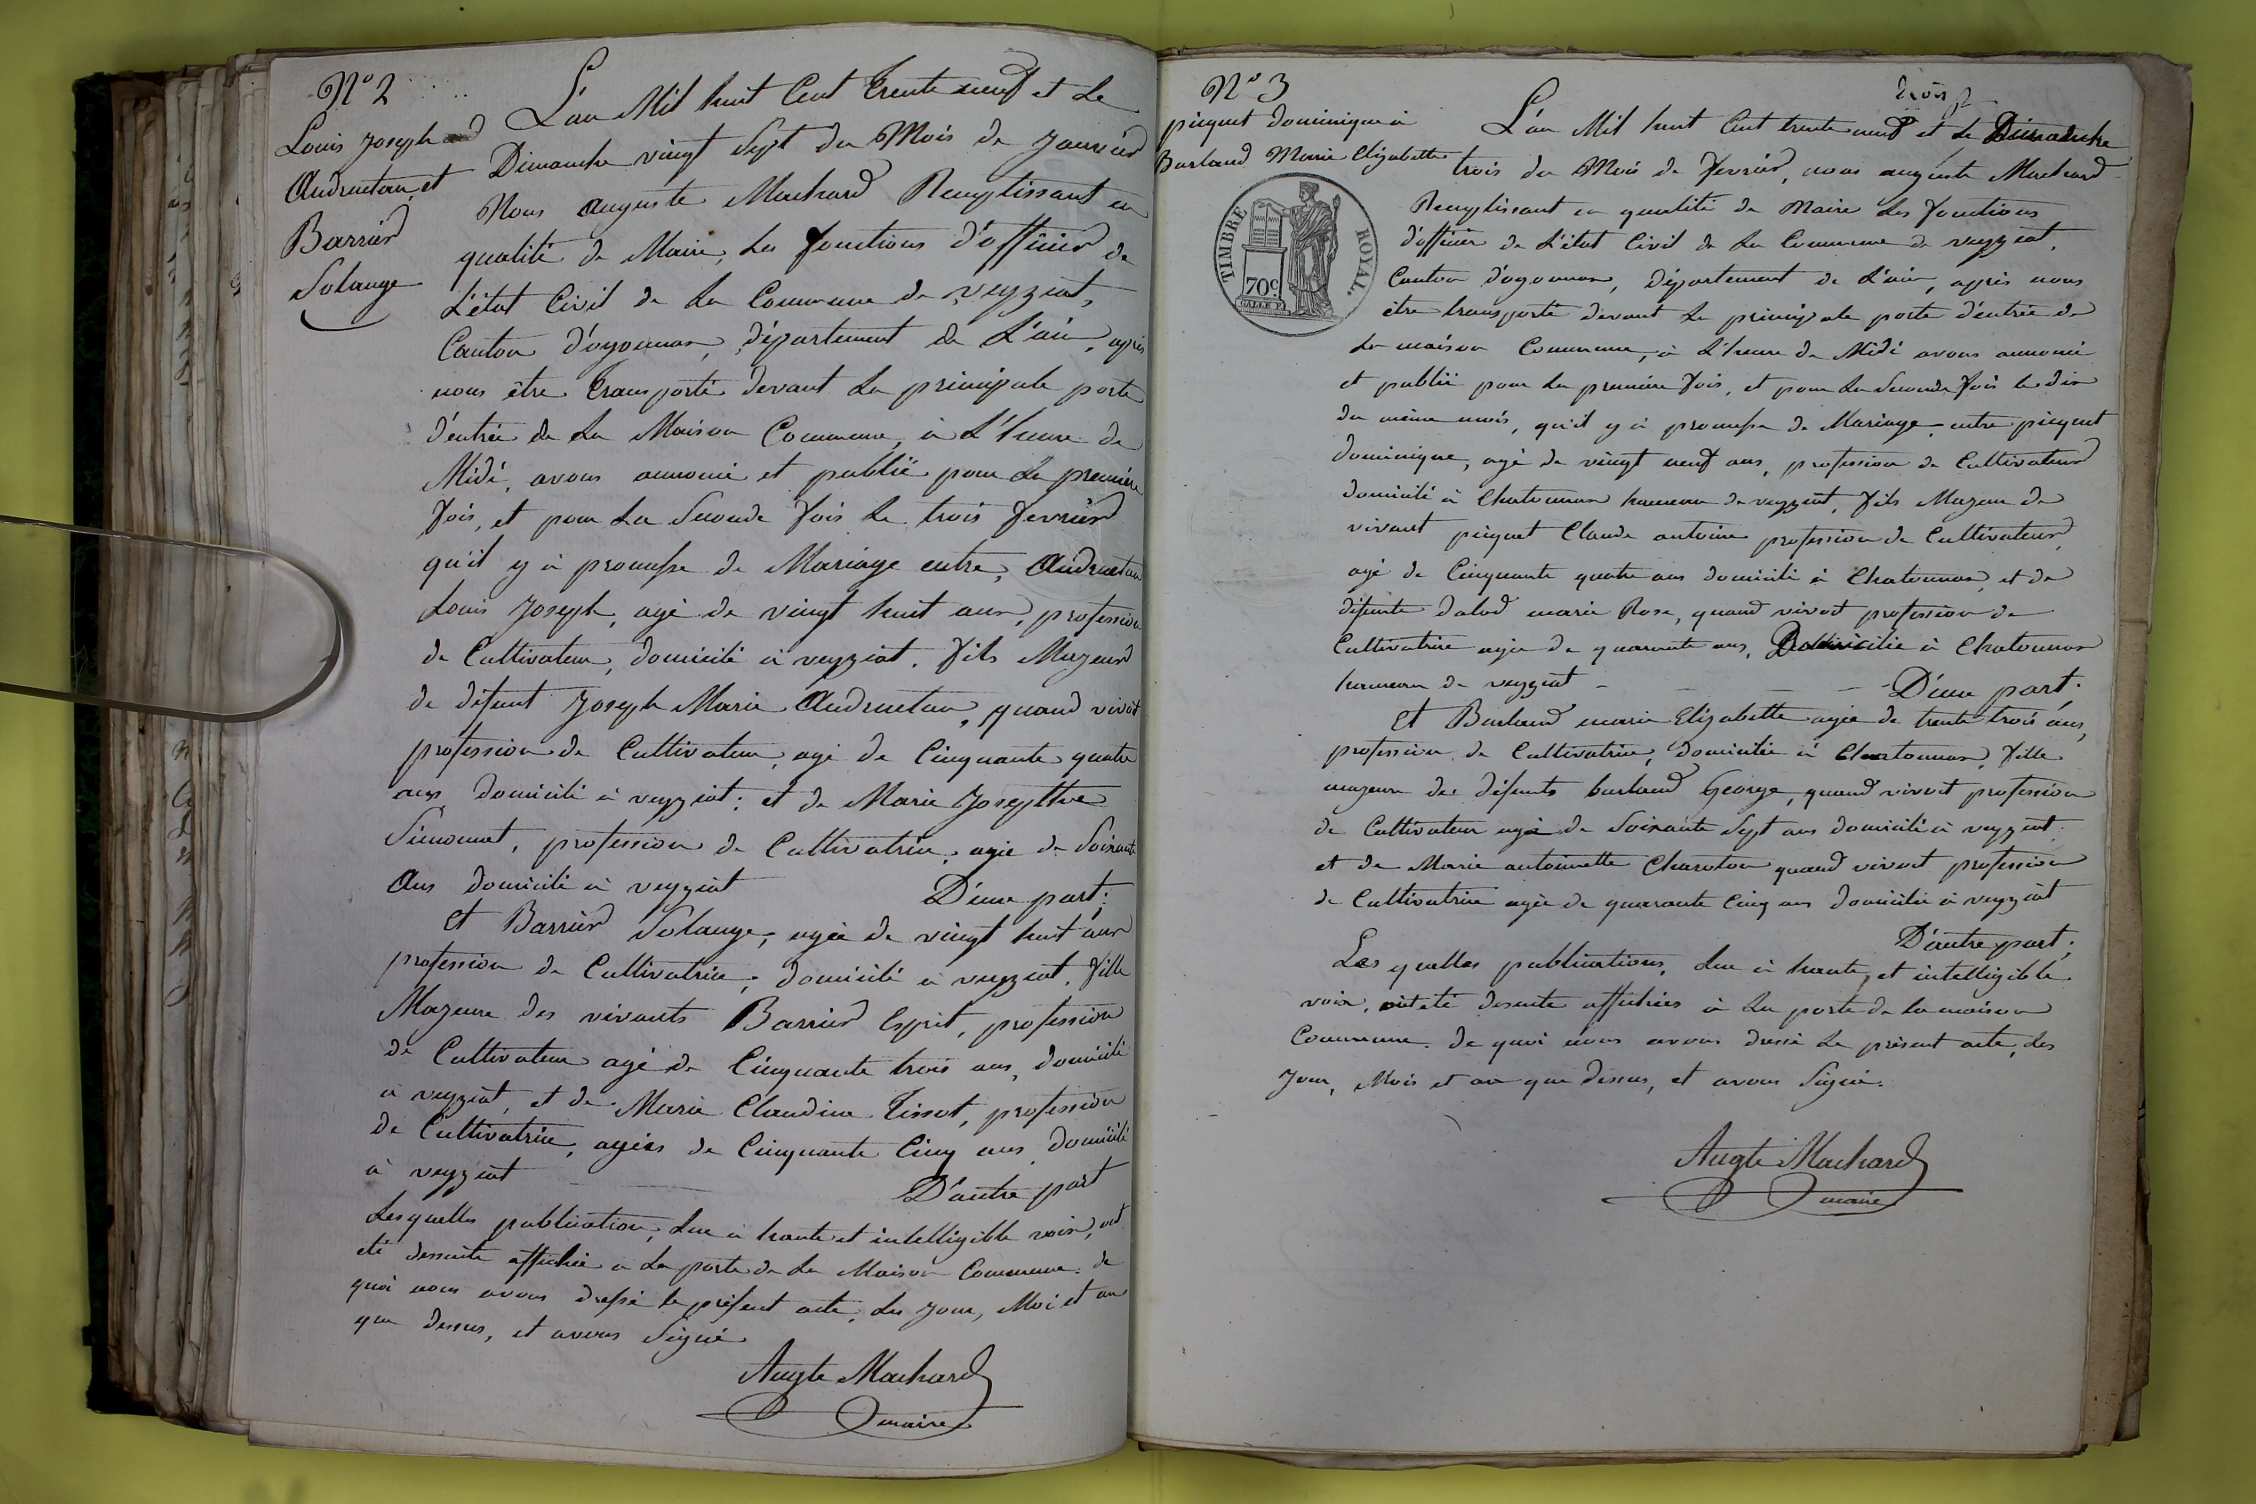 N° 2
Louis Joseph
Audruetan, et
Barrier
Solange
L'an Mil huit Cent trente neuf et le
Dimanche vingt Sept du Mois de Janvier
Nous auguste Machard Remplissant en
qualité de Maire, les fonctions d'officier de
L'état Civil de La Commune de veyziat,
Canton d'oyonnax, département de L'ain, après
nous être transporté devant La principale porte
d'entrée de La Maison Commune, à L'heure de
Midi, avons annoncé et publié pour La première
fois, et pour La Seconde fois Le trois fevrier
qu'il y à promesse de Mariage entre, Audruetan
Louis Joseph, agé de vingt huit ans, profession
de Cultivateur, domicilié à veyziat. fils Mazeur
de défunt Joseph Marie Audruetan, quand vivoit
profession de Cultivateur, agé de Cinquante quatre
ans domicilié à veyziat; et de Marie Josephtte
Simonnet, profession de Cultivatrice, agée de Soixante
Ans domicilié à veyziat D'une part;
et Barrier Solange, agée de vingt huit ans
profession de Cultivatrice, domicilié à veyziat, fille
Mazeure des vivants Barrier Esprit, profession
de Cultivateur agé de Cinquante trois ans, domicilié
à veyziat, et de Marie Claudine Tissot, profession
de Cultivatrice, agées de Cinquante Cinq ans, domicilié
à veyziat D'autre part
Lesquelles publication, Lue à haute et intelligible voix, ont
été dessuite affichée à La porte de La Maison Commune. de
quoi nous avons dressé le présent acte, les Jour, Moi et an
que dessus, et avons Signé.
Augte Machard
maire
N° 3
piquet dominique à
Burland Marie Elizabette
TIMBRE ROYAL.
70c
trois
L'an Mil huit Cent trente neuf et le Dimanche
trois du Mois de fevrier, nous auguste Machard
Remplissant en qualité de Maire les fonctions
d'officier de L'état Civil de La Commune de veyziat,
Canton d'oyonnax, département de L'ain, après nous
être transporté devant La principale porte d'entrée de
La maison Commune, à L'heure de Midi avons annoncé
et publié pour La première fois, et pour La Seconde fois le dix
du même mois, qu'il y à promesse de Mariage, entre piquet
dominique, agé de vingt neuf ans, profession de Cultivateur
domicilié à Chatonnax hameau de veyziat, fils Mazeur de
vivant piquet Claude antoine profession de Cultivateur,
agé de Cinquante quatre ans domicilié à Chatonnax, et de
défunte dalod marie Rose, quand vivoit profession de
Cultivatrice agée de quarante ans, Domicilié à Chatonnax
hameau de veyziat D'une part;
et Burland marie Elizabette agée de trente trois ans,
profession de Cultivatrice, domiciliée à Chatonnax, fille
mazeure des défunts burland George, quand vivoit profession
de Cultivateur agé de Soixante Sept ans domicilié à veyziat
et de Marie antoinette Charoton quand vivoit profession
de Cultivatrice agée de quarante Cinq ans domicilié à veyziat
D'autre part;
Les quelles publications, Lue à haute, et intelligible
voix, ont été desuite affichées à La porte de la maison
Commune. de quoi nous avons dressé Le présent acte, les
Jour, Mois et an que dessus, et avons Signé.
Augte Machard
maire